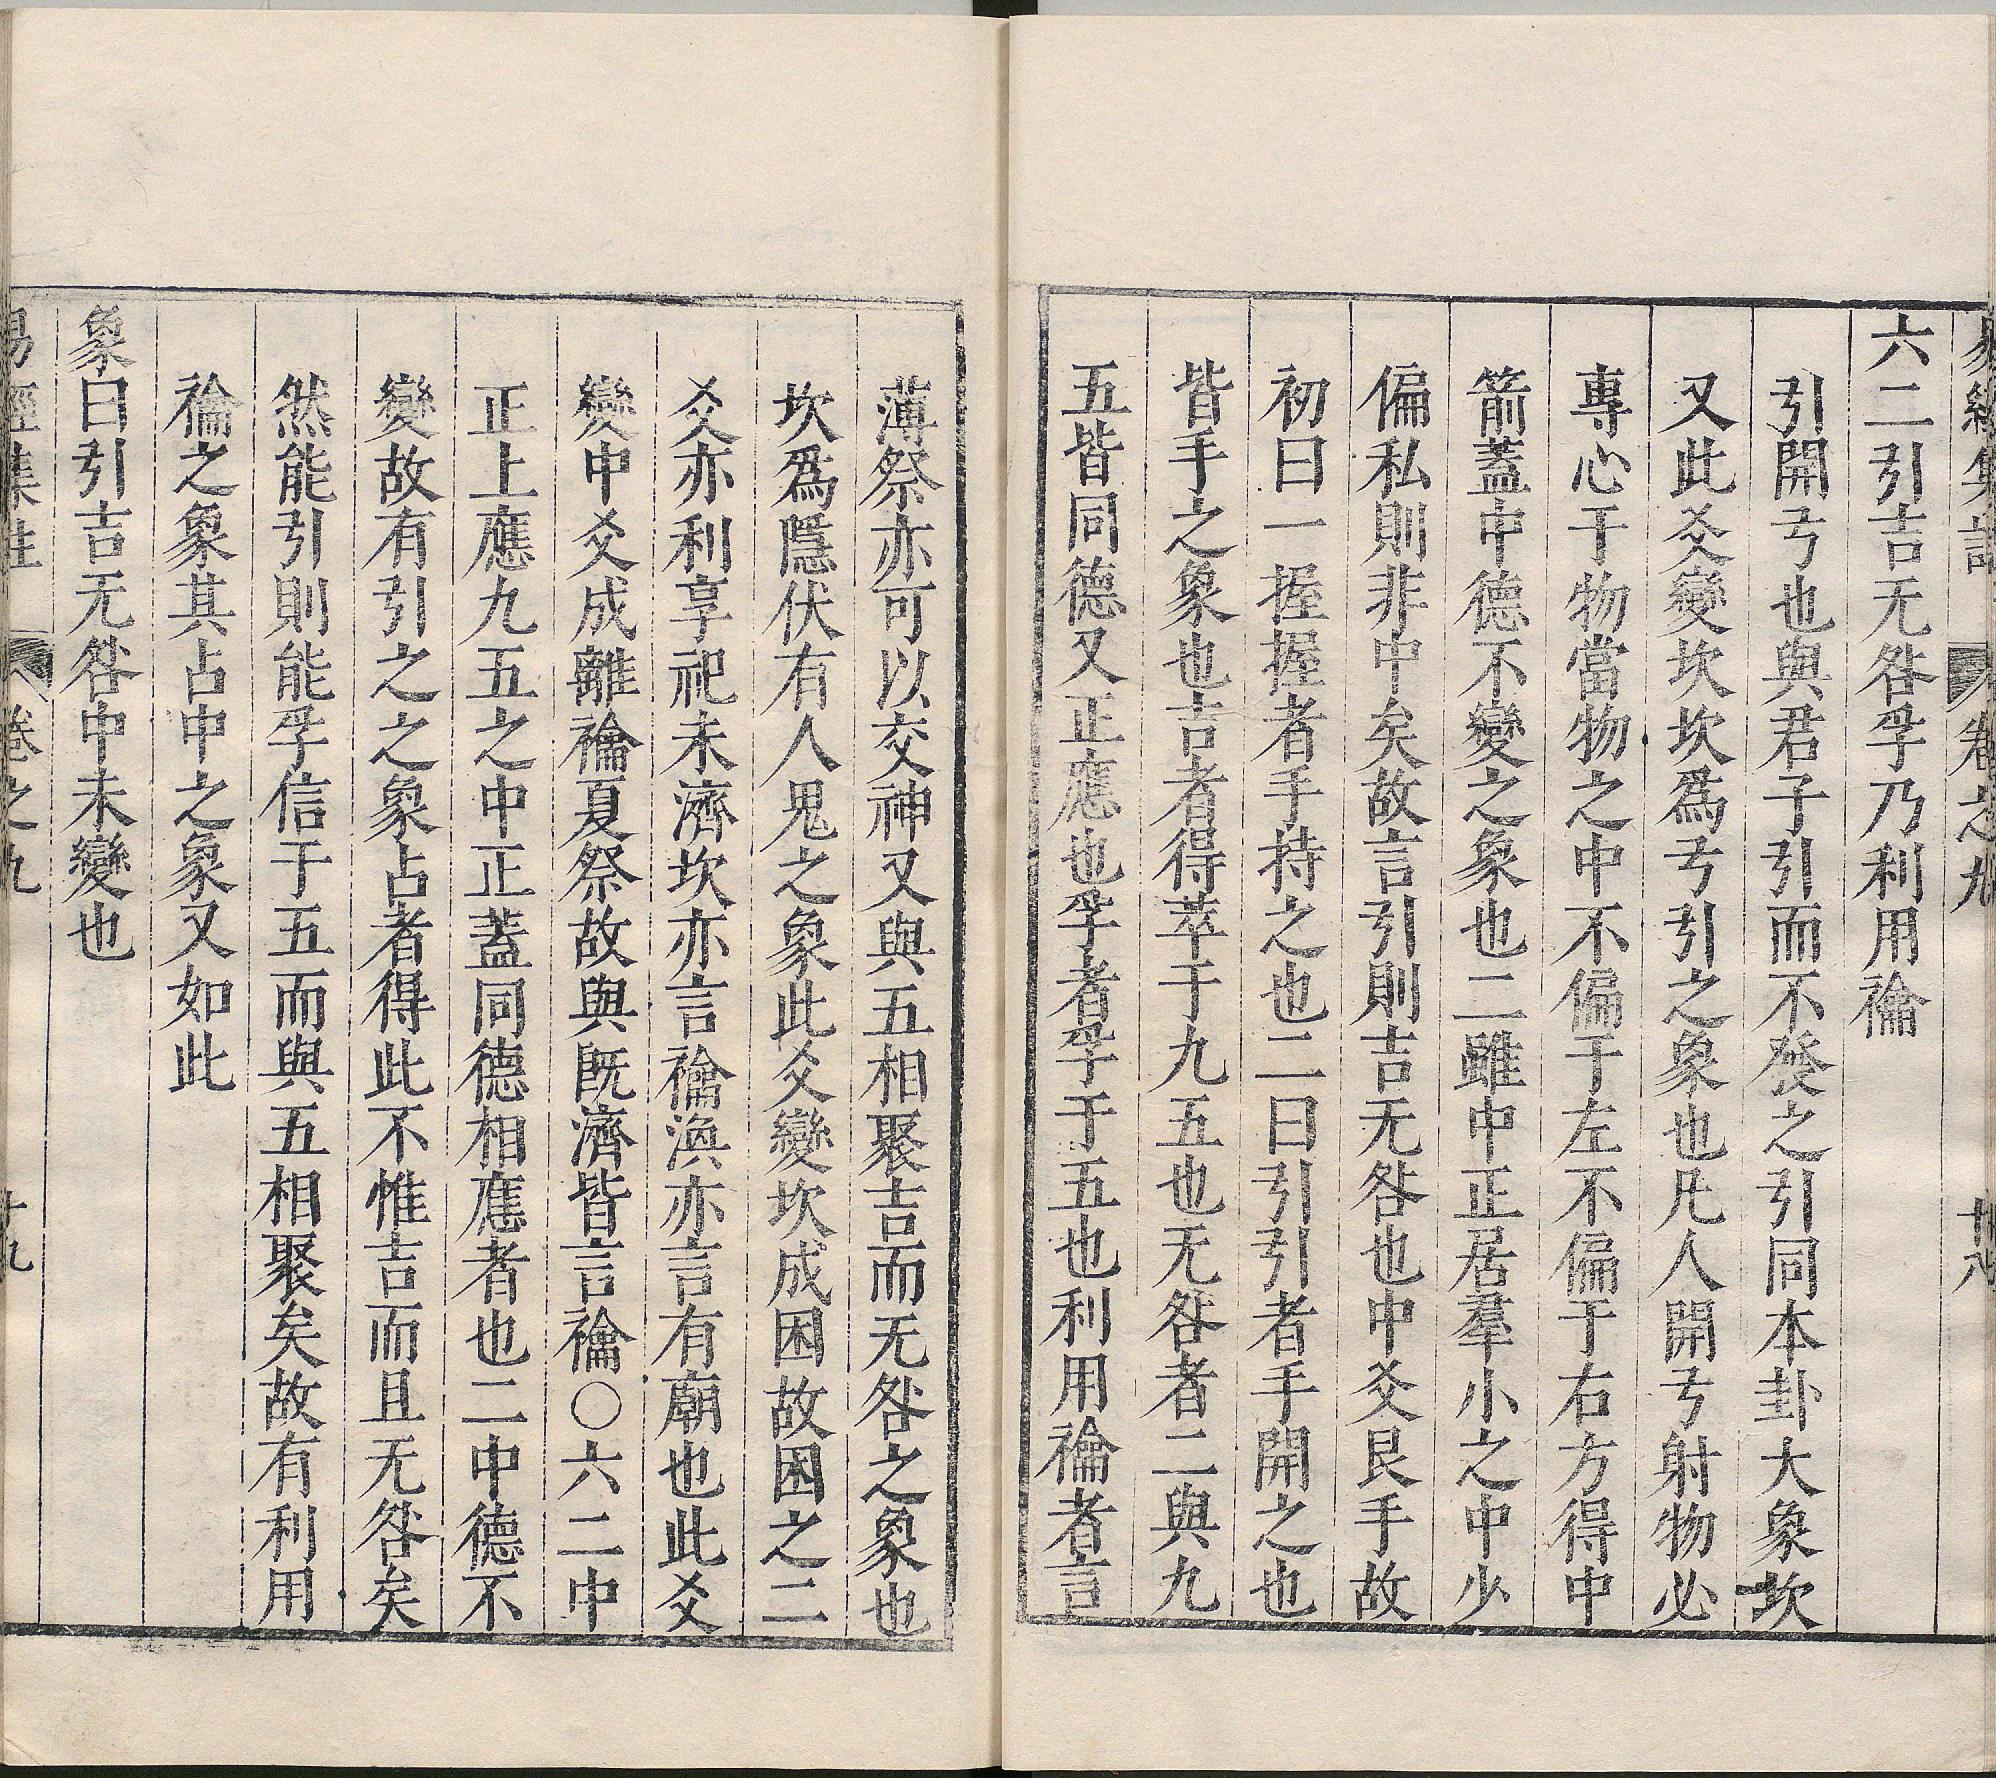 易經集註 卷之九 十八
六二引吉无咎孚乃利用禴
引開弓也與君子引而不發之引同本卦大象坎
又此爻變坎坎爲弓引之象也凡人開弓射物必
專心于物當物之中不偏于左不偏于右方得中
箭蓋中德不變之象也二雖中正居羣小之中少
偏私則非中矣故言引則吉无咎也中爻艮手故
初曰一握握者手持之也二曰引引者手開之也
皆手之象也吉者得萃于九五也无咎者二與九
五皆同德又正應也孚者孚于五也利用禴者言
薄祭亦可以交神又與五相聚吉而无咎之象也
坎爲隱伏有人鬼之象此爻變坎成困故困之二
爻亦利享祀未濟坎亦言禴渙亦言有廟也此爻
變中爻成離禴夏祭故與既濟皆言禴○六二中
正上應九五之中正蓋同德相應者也二中德不
變故有引之之象占者得此不惟吉而且无咎矣
然能引則能孚信于五而與五相聚矣故有利用
禴之象其占中之象又如此
象曰引吉无咎中未變也
易經集註 卷之九 十九